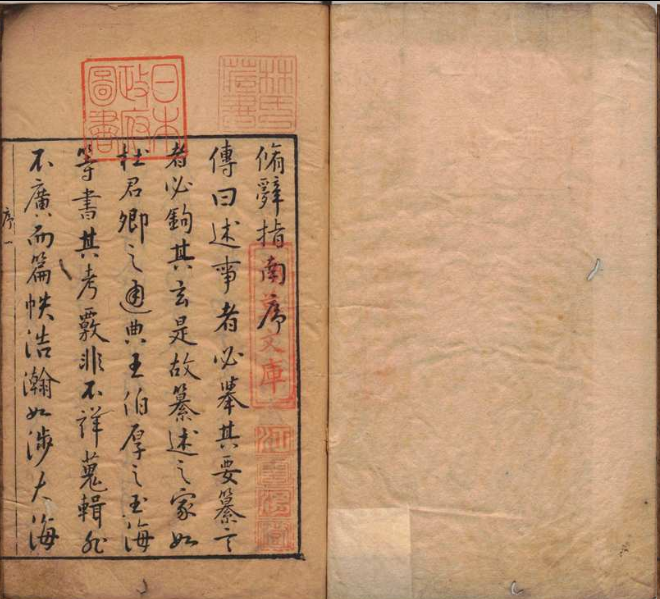 林氏藏書
日本政府圖書
脩辭指南序
文庫
江雲渭樹
傳曰述事者必舉其要纂言
者必鉤其玄是故纂述之家如
杜君卿之通典王伯厚之玉海
等書其考覈非不詳蒐輯非
不廣而篇帙浩瀚如涉大海
序一